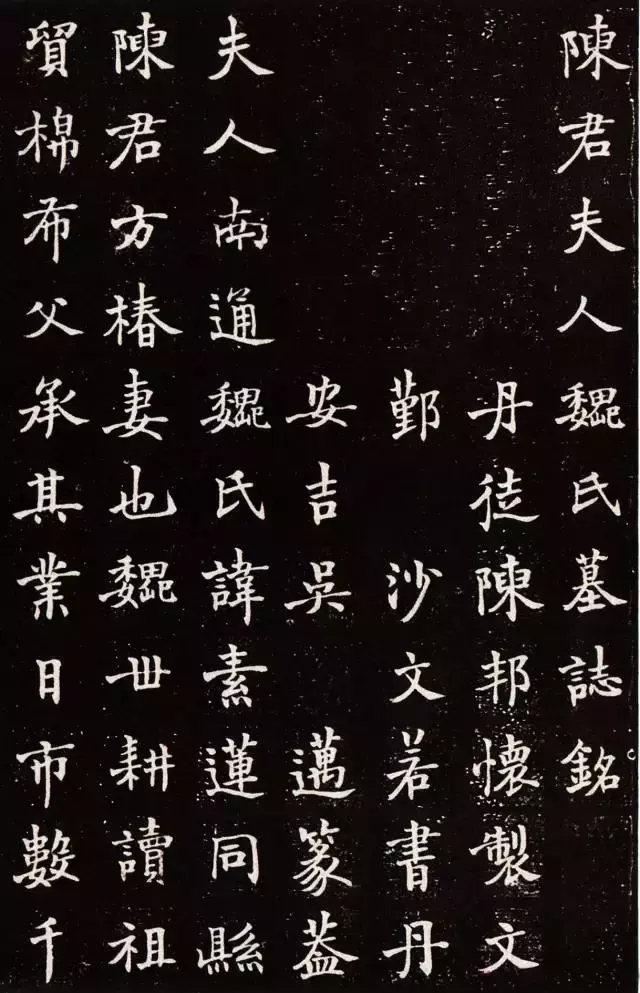 陳君夫人魏氏墓誌銘
丹徒陳邦懷製文
鄞 沙文若書丹
安吉吳 邁篆蓋
夫人南通魏氏諱素蓮同縣
陳君方椿妻也魏世耕讀祖
貿棉布父承其業日市數千